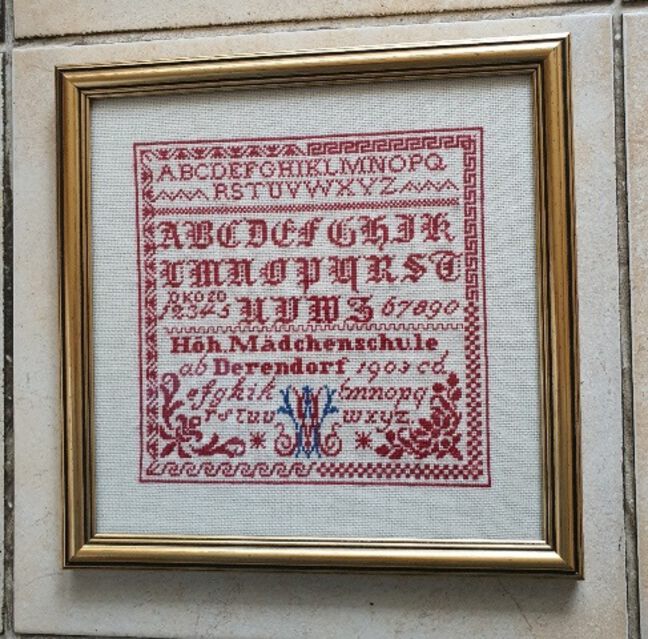 ABCDEFGHIKLMNOPQ
RSTUVWXYZ
ABCDEFGHIK
LMNOPQRST
OKOZO
12345 UVWZ 67890
Höh. Mädchenschule
ab Derendorf 1903 cd
efghik lmnopq
rstuv W wxyz